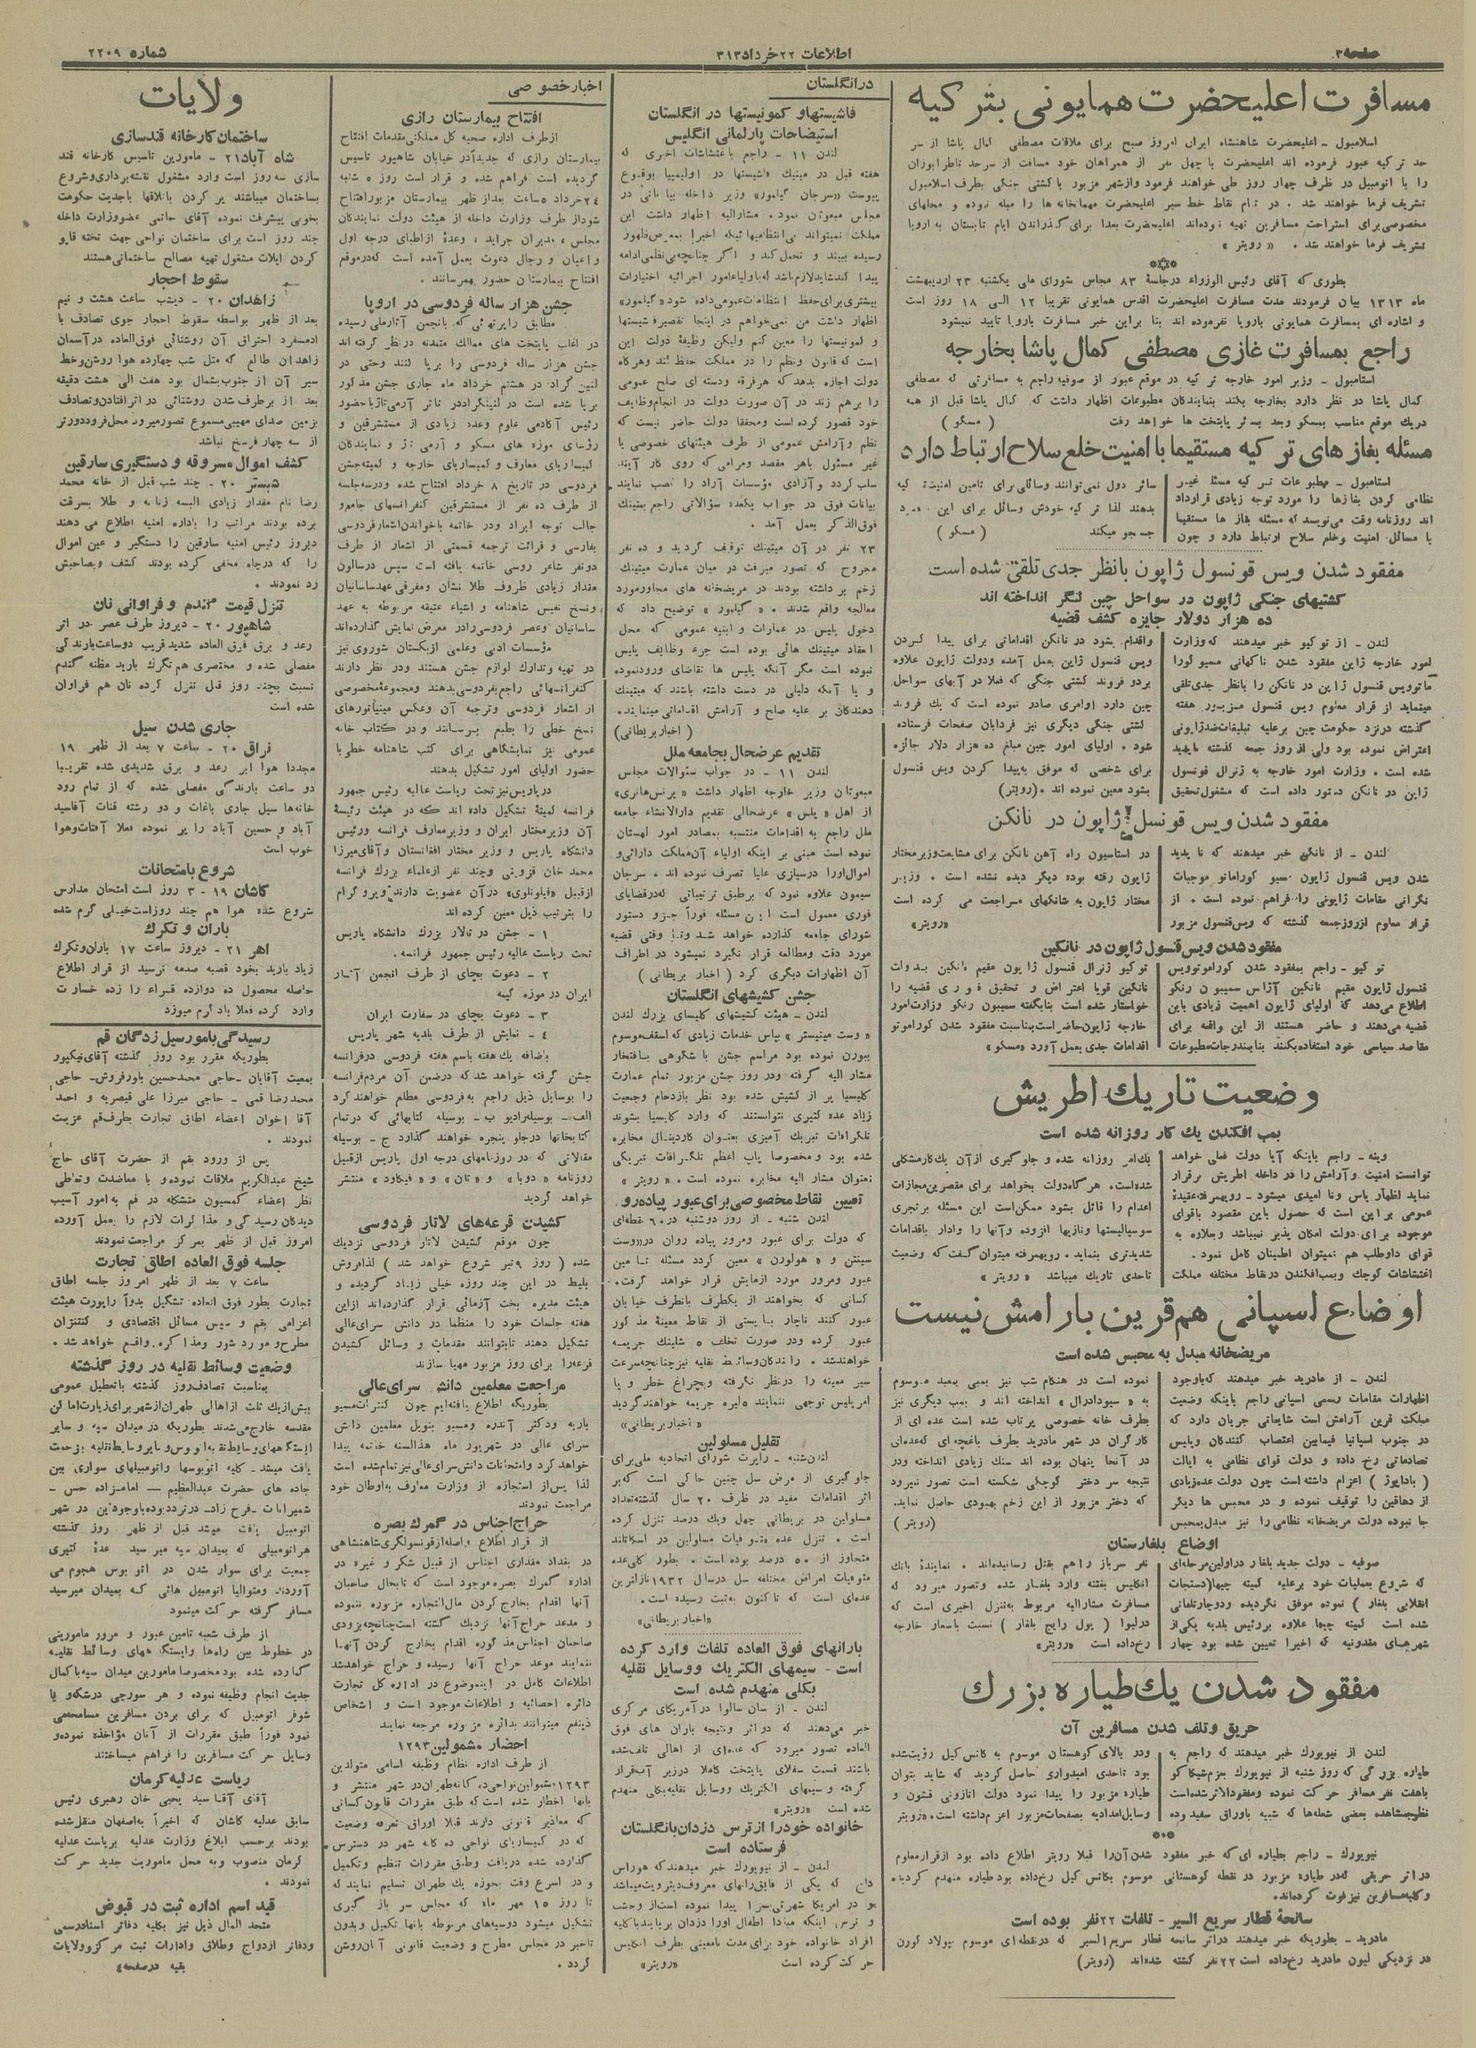 صفحه ۳
اطلاعات ۲۲ خرداد ۳۱۳
شماره ۲۲۰۹
مسافرت اعلیحضرت همایونی بترکیه
اسلامبول - اعلیحضرت شاهنشاه ایران امروز صبح برای ملاقات مصطفی کمال پاشا از سر
حد ترکیه عبور فرموده اند اعلیحضرت با چهل نفر از همراهان خود مسافت از سرحد تا طرابوزان
را با اتومبیل در ظرف چهار روز طی خواهند فرمود و از شهر مزبور با کشتی جنگی بطرف اسلامبول
تشریف فرما خواهند شد . در تمام نقاط خط سیر اعلیحضرت مهمانخانه ها را مبله نموده و محلهای
مخصوصی برای استراحت مسافرین تهیه نموده‌اند اعلیحضرت بعدا برای گذراندن ایام تابستان به اروپا
تشریف فرما خواهند شد . « رویتر »
بطوری که آقای رئیس الوزراء درجلسهٔ ۸۳ مجلس شورای ملی یکشنبه ۲۳ اردیبهشت
ماه ۱۳۱۳ بیان فرمودند مدت مسافرت اعلیحضرت اقدس همایونی تقریبا ۱۲ الی ۱۸ روز است
و اشاره ای بمسافرت همایونی باروپا نفرموده اند بنا براین خبر مسافرت باروپا تایید نمیشود
راجع بمسافرت غازی مصطفی کمال پاشا بخارجه
استامبول - وزیر امور خارجه ترکیه در موقع عبور از صوفیه راجع به مسافرتی که مصطفی
کمال پاشا در نظر دارد بخارجه بکند بنمایندگان مطبوعات اظهار داشت که کمال پاشا قبل از همه
دریک موقع مناسب بمسکو وبعد بسایر پایتخت ها خواهد رفت ( مسکو )
مسئله بغاز های ترکیه مستقیما با امنیت خلع سلاح ارتباط دارد
استامبول - مطبوعات ترکیه مسئلهٔ غیر
نظامی کردن بغازها را مورد توجه زیادی قرارداد
اند روزنامه وقت می‌نویسد که مسئله بغاز ها مستقیما
با مسائل امنیت وخلع سلاح ارتباط دارد و چون
سائر دول نمی‌توانند وسائلی برای تامین امنیت ترکیه
بدهند لذا ترکیه خودش وسائل برای این مقصود
جستجو میکند ( مسکو )
مفقود شدن ویس قونسول ژاپون بانظر جدی تلقی شده است
کشتیهای جنگی ژاپون در سواحل چین لنگر انداخته اند
ده هزار دولار جایزه کشف قضیه
لندن - از توکیو خبر میدهند که وزارت
امور خارجه ژاپن مفقود شدن ناگهانی مسیو کورا
ماتوویس قنسول ژاپن در نانکن را بانظر جدی تلقی
مینماید از قرار معلوم ویس قنسول مزبور هفته
گذشته درنزد حکومت چین برعلیه تبلیغات ضدژاپونی
اعتراض نموده بود ولی از روز جمعه گذشته ناپدید
شده است . وزارت امور خارجه به ژنرال قونسول
ژاپن در نانکن دستور داده است که مشغول تحقیق
واقدام بشود در نانکن اقداماتی برای پیدا کردن
ویس قنسول ژاپن بعمل آمده ودولت ژاپون علاوه
بردو فروند کشتی جنگی که فعلا در آبهای سواحل
چین دارد اوامری صادر نموده است که یک فروند
کشتی جنگی دیگری نیز فردا بان صفحات فرستاده
شود . اولیای امور چین مبلغ ده هزار دلار جائزه
برای شخصی که موفق به‌پیدا کردن ویس قنسول
بشود معین نموده اند .(رویتر)
مفقود شدن ویس قونسل ژاپون در نانکن
لندن - از نانکن خبر میدهند که نا پدید
شدن ویس قنسول ژاپون مسیو کوراماتو موجبات
نگرانی مقامات ژاپونی را فراهم نموده است . از
قرار معلوم ازروزجمعه گذشته که ویس‌قنسول مزبور
در استاسیون راه آهن نانکن برای مشایعت‌وزیرمختار
ژاپون رفته بوده دیگر دیده نشده است . وزیر
مختار ژاپون به شانگهای مراجعت می کرده است
«رویتر»
مفقود شدن ویس قنسول ژاپون در نانکین
توکیو - راجع بمفقود شدن کوراموتوویس
قنسول ژاپون مقیم نانکین آژانس سیمبون رنکو
اطلاع می‌دهد که اولیای ژاپون اهمیت زیادی باین
قضیه می‌دهند و حاضر هستند از این واقعه برای
مقاصد سیاسی خود استفاده‌بکنند بنابمندرجات‌مطبوعات
توکیو ژنرال قنسول ژاپون مقیم نانکین بدولت
نانکین قویا اعتراض و تحقیق فوری قضیه را
خواستار شده است بنابگفته سیمبون رنکو وزارت‌امور
خارجه ژاپون‌حاضراست‌بمناسبت مفقود شدن کوراموتو
اقدامات جدی بعمل آورد «مسکو»
وضعیت تاریک اطریش
بمب افکندن یک کار روزانه شده است
وینه - راجع باینکه آیا دولت فعلی خواهد
توانست امنیت و آرامش را در داخله اطریش برقرار
نماید اظهار یاس ونا امیدی میشود - رویهمرفته‌عقیدهٔ
عمومی براین است که حصول باین مقصود باقوای
موجوده برای دولت امکان پذیر نمیباشد وبعلاوه به
قوای داوطلب هم نمیتوان اطمینان کامل نمود .
اغتشاشات کوچک وبمب‌افکندن درنقاط مختلفه مملکت
یک‌امر روزانه شده و جلوگیری ازآن یک‌کارمشکلی
شده‌است. هر گاه دولت بخواهد برای مقصرین‌مجازات
اعدام را قائل بشود ممکن‌است این مسئله برتجری
سوسیالیستها ونازیها افزوده وآنها را وادار باقدامات
شدیدتری بنماید. رویهمرفته میتوان‌گفت‌که وضعیت
تاحدی تاریک میباشد « رویتر »
اوضاع اسپانی هم قرین بارامش نیست
مریضخانه مبدل به محبس شده است
لندن - از مادرید خبر میدهند که‌باوجود
اظهارات مقامات رسمی اسپانی راجع باینکه وضعیت
مملکت قرین آرامش است شایعاتی جریان دارد که
در جنوب اسپانیا فیمابین اعتصاب کنندگان وپلیس
تصادماتی رخ داده و دولت قوای نظامی به ایالت
( باداپوز ) اعزام داشته است چون دولت عده‌زیادی
از دهاقین را توقیف نموده و در محبس ها دیگر
جا نبوده دولت مریضخانه نظامی را نیز مبدل‌بمحبس
نموده است در هنگام شب نیز بمبی بمعبد موسوم
به « سیودادرال » انداخته اند و بمب دیگری نیز
بطرف خانه خصوصی پرتاب شده است عده ای از
کارگران در شهر مادرید بطرف باغچه‌ای که‌عده‌ای
در آنجا پنهان بوده اند سنک زیادی انداخته ودر
نتیجه سر دختر کوچکی شکسته است تصور نمیرود
که دختر مزبور از این زخم بهبودی حاصل نماید.
(رویتر)
اوضاع بلغارستان
صوفیه - دولت جدید بلغار دراولین مرحله‌ای
که شروع بعملیات خود برعلیه کمیته چیها(دستجات
انقلابی بلغار ) نموده موفق نگردیده ودوچارتلفاتی
شده است کمیته چیها علاوه بررئیس بلدیه یکی‌از
شهرهای مقدونیه که اخیرا تعیین شده بود چهار
نفر سرباز را هم بقتل رسانیده‌اند . نمایندهٔ بانک
انگلیس بغتته وارد بلغار شده وتصور میرود که
مسافرت مشارالیه مربوط به‌تنزل اخیری است که
درلیوا ( پول رایج بلغار ) نسبت باسعار خارجه
رخ‌داده است «رویتر»
مفقود شدن یک طیاره بزرک
حریق وتلف شدن مسافرین آن
لندن از نیویورک خبر میدهند که راجع به
طیاره بزرگی که روز شنبه از نیویورک بعزم‌شیکاگو
باهفت نفر مسافر حرکت نموده ومفقودالاثرشده‌است
نظربمشاهده بعضی شعله‌ها که شبیه باوراق سفیدبوده
ودر بالای کوهستان موسوم به کاتس کیل رؤیت‌شده
بود تاحدی امیدواری حاصل گردید که شاید بتوان
طیاره مزبور را پیدا نمود دولت اتازونی قشون و
وسایل‌امدادیه بصفحات‌مزبور اعزام‌داشته است. «رویتر
نیویورک - راجع بطیاره ای که خبر مفقود شدن‌آن‌را قبلا رویتر اطلاع داده بود ازقرارمعلوم
در اثر حریقی که‌در طیاره مزبور در نقطه کوهستانی موسوم بکاتس کیل رخ‌داده بود طیاره منهدم گردیده
وکلیه‌مسافرین نیزفوت کرده‌اند.
سانحهٔ قطار سریع السیر - تلفات ۲۲ نفر بوده است
مادرید - بطوریکه خبر میدهند دراثر سانحه قطار سریع‌السیر که درنقطه‌ای موسوم بپولاد گورن
در نزدیکی لیون مادرید رخ‌داده است ۲۲ نفر کشته شده‌اند (رویتر)
در انگلستان
فاشیستها و کمونیستها در انگلستان
استیضاحات پارلمانی انگلیس
لندن ۱۱ - راجع باغتشاشات اخیری که
هفته قبل در میتینک فاشیستها در اولیمپیا بوقوع
پیوست «سرجان گیلمور» وزیر داخله بیاناتی در
مجلس مبعوثان نمود. مشارالیه اظهار داشت این
مملکت نمیتواند بی‌انتظامیهائیکه اخیرا بمعرض‌ظهور
رسیده ببیند و تحمل کند و اگر چنانچه بی‌نظمی‌ادامه
پیدا کند شاید لازم باشد که باولیاء امور اجرائیه اختیارات
بیشتری برای‌حفظ انتظامات عمومی داده شود «گیلمور»
اظهار داشت من نمی‌خواهم در اینجا تقصیر فاشیستها
و کمونیستها را معین کنم ولیکن وظیفهٔ دولت این
است که قانون ونظم را در مملکت حفظ کند وهرگاه
دولت اجازه بدهد که هرفرقه ودسته ای صلح عمومی
را برهم زند در آن صورت دولت در انجام‌وظایف
خود قصور کرده است ومحققا دولت حاضر نیست که
نظم وآرامش عمومی از طرف هیئتهای خصوصی یا
غیر مسئول باهر مقصد ومرامی که روی کار آیند.
سلب گردد و آزادی مؤسسات آزاد را غصب نمایند
بیانات فوق در جواب یکعده سؤالاتی راجع بمیتینک
فوق‌الذکر بعمل آمد .
۲۳ نفر در آن میتینک توقیف گردید و ده نفر
مجروح که تصور میرفت در میان عمارت میتینک
زخم بر داشته بودند در مریضخانه های مجاورمورد
معالجه واقع شدند . « گیلمور » توضیح داد که
دخول پلیس در عمارات و ابنیه عمومی که محل
انعقاد میتینک هائی بوده است جزء وظایف پلیس
نبوده است مگر آنکه پلیس ها تقاضای ورودنموده
و یا آنکه دلیلی در دست داشته باشند که میتینک
دهندگان بر علیه صلح و آرامش اقداماتی مینمایند.
( اخباربریطانی)
تقدیم عرضحال بجامعه ملل
لندن ۱۱ - در جواب سئوالات مجلس
مبعوثان وزیر خارجه اظهار داشت «پرنس‌هانری»
از اهل « پلس » عرضحالی تقدیم دارالانشاء جامعه
ملل راجع به اقدامات منتسبه بمصادر امور لهستان
نموده است مبنی بر اینکه اولیاء آن‌مملکت دارائی‌و
اموال اورا درسیلزی علیا تصرف نموده اند . سرجان
سیمون علاوه نمود که برطبق ترتیباتی که‌درقضایای
فوری معمول است این مسئله فوراً جزو دستور
شورای جامعه گذارده خواهد شد وتا وقتی قضیه
مورد دقت ومطالعه قرار نگیرد نمیشود در اطراف
آن اظهارات دیگری کرد ( اخبار بریطانی )
جشن کشیشهای انگلستان
لندن - هیئت کشیشهای کلیسای بزرک لندن
« وست مینیستر » بپاس خدمات زیادی که اسقف‌موسوم
ببورن نموده بود مراسم جشن با شکوهی بافتخار
مشار الیه گرفته ودر روز جشن مزبور تمام عمارت
کلیسیا پر از کشیش شده بود نظر بازدحام وجمعیت
زیاد عده کثیری نتوانستند که وارد کلیسیا بشوند
تلگرافات تبریک آمیزی بعنوان کاردینال مخابره
شده بود و مخصوصا پاپ اعظم تلگرافات تبریکی
بعنوان مشار الیه مخابره نموده است . « رویتر »
تعیین نقاط مخصوصی برای عبور پیاده رو
لندن شنبه - از روز دوشنبه در ۶۰ نقطه‌ای
که دولت برای عبور ومرور پیاده روان در«وست
سینتن و « هولورن » معین کردد مسئله تامین
عبور ومرور مورد آزمایش قرار خواهد گرفت.
کسانی که بخواهند از یکطرف بانطرف خیابان
عبور کنند ناچار بایستی از نقاط معینهٔ مذکور
عبور کرده ودر صورت تخلف ۵ شلینک جریمه
خواهندشد . رانندگان‌وسائط نقلیه نیزچنانچه‌سرعت
سیر معینه را درنظر نگرفته وبچراغ خطر و یا
امرپلیس توجهی ننمایند ۵ لیره جریمه خواهندگردید
«اخبار بریطانی»
تقلیل مسلولین
لندن‌شنبه - راپرت شورای اتحادیه ملی‌برای
جلوگیری از مرض سل چنین حاکی است که‌بر
اثر اقدامات مفید در ظرف ۲۰ سال گذشته‌تعداد
مسلولین در بریطانی چهل ویک درصد تنزل کرده
است . تنزل عده متوفیات مسلولین در اسکاتلند
متجاوز از ۵۰ درصد بوده است . بطور کلی‌عده
متوفیات امراض مختلفه سل درسال ۱۹۳۲ نازلترین
عده‌ای است که تاکنون به‌ثبت رسیده است.
«اخبار بریطانی»
بارانهای فوق العاده تلفات وارد کرده
است - سیمهای الکتریک ووسایل نقلیه
بکلی منهدم شده است
لندن - از سان سالوا درآمریکای مرکزی
خبر می‌دهند که دراثر ونتیجه باران های فوق
العاده تصور میرود که عده‌ای از اهالی تلف‌شده
باشند قسمت سفلای پایتخت کاملا درزیر آب‌قرار
گرفته وسیمهای الکتریک ووسایل نقلیه‌بکلی منهدم
شده است «رویتر»
خانواده خودرا از ترس دزدان بانگلستان
فرستاده است
لندن - از نیویورک خبر میدهندکه هوراس
داج که یکی از قایق‌رانهای معروف‌دیترویت‌میباشد
و در امریکا شهرتی‌بسزا پیدا نموده است‌از وحشت
و ترس اینکه مبادا اطفال اورا دزدان بربایندباکلیه
افراد خانواده خود برای مدت نامعینی بطرف انگلیس
حرکت کرده است «رویتر»
اخبار خصوصی
افتتاح بیمارستان رازی
ازطرف اداره صحیه کل مملکتی مقدمات افتتاح
بیمارستان رازی که جدیداًدر خیابان شاهپور تاسیس
گردیده است فراهم شده و قرار است روز ۵ شنبه
۲۴ خرداد ۵ ساعت بعداز ظهر بیمارستان مزبورافتتاح
شود از طرف وزارت داخله از هیئت دولت نمایندگان
مجلس ، مدیران جراید ، وعدهٔ ازاطبای درجه اول
واعیان و رجال دعوت بعمل آمده است که‌درموقم
افتتاح بیمارستان حضور بهم‌رسانند.
جشن هزار ساله فردوسی در اروپا
مطابق راپرتهائی که بانجمن آثارملی رسیده
در اغلب پایتخت های ممالک متمدنه درنظر گرفته اند
جشن هزار ساله فردوسی را برپا کنند وحتی در
لنین گراد در هشتم خرداد ماه جاری جشن مذکور
برپا شده است در لنینگراددر تاتر آرمی‌تاژباحضور
رئیس آکادمی علوم وعده زیادی از مستشرقین و
رؤسای موزه های مسکو و آرمی تاژ و نمایندگان
کمیساریای معارف و کمیساریای خارجه و کمیته‌جشن
فردوسی در تاریخ ۸ خرداد افتتاح شده ودرسه‌جلسه
از طرف ده نفر از مستشرقین کنفرانسهای جامع‌و
جالب توجه ایراد ودر خاتمه باخواندن‌اشعارفردوسی
بفارسی و قرائت ترجمه قسمتی از اشعار از طرف
دونفر شاعر روسی خاتمه یافته است سپس درسالون
مقدار زیادی ظروف طلا نشان ومفرقی عهدساسانیان
ونسخ نفیس شاهنامه و اشیاء عتیقه مربوطه به عهد
ساسانیان وعصر فردوسی‌رادر معرض نمایش گذارده‌اند
مؤسسات ادبی وعلمی ازبکستان شوروی نیز
در تهیه وتدارک لوازم جشن هستند ودر نظر دارند
کنفرانسهائی راجع بفردوسی‌بدهند ومجموعهٔ‌مخصوصی
از اشعار فردوسی وترجمه آن وعکس مینیاتورهای
نسخ خطی را بطبع برسانند ودر کتاب خانه
عمومی نیز نمایشگاهی برای کتب شاهنامه خطی‌با
حضور اولیای امور تشکیل بدهند
درپاریس‌نیزتحت ریاست عالیه رئیس جمهور
فرانسه کمیتهٔ تشکیل داده اند که در هیئت رئیسهٔ
آن وزیرمختار ایران و وزیرمعارف فرانسه ورئیس
دانشگاه پاریس و وزیر مختار افغانستان وآقای‌میرزا
محمد خان قزوینی وچند نفر ازعلماء بزرک فرانسه
ازقبیل «فیلونلوی» درآن عضویت دارند وپروگرام
را بترتیب ذیل معین کرده اند
۱ - جشن در تالار بزرک دانشگاه پاریس
تحت ریاست عالیه رئیس جمهور فرانسه .
۲ - دعوت بچای از طرف انجمن آثار
ایران در موزه گیمه
۳ - دعوت بچای در سفارت ایران
۴ - نمایش از طرف بلدیه شهر پاریس
باضافه یک هفته باسم هفته فردوسی درفرانسه
جشن گرفته خواهد شدکه درضمن آن مردم‌فرانسه
را بوسایل ذیل راجع به‌فردوسی مطلع خواهند کرد
الف - بوسیله‌رادیو ب - بوسیله کتابهائی که درتمام
کتابخانها درجلو پنجره خواهند گذارد ج - بوسیله
مقالاتی که در روزنامهای درجه اول پاریس ازقبیل
روزنامه «دوبا» و «تان» و «فیگارو» منتشر
خواهد گردید
کشیدن قرعه‌های لاتار فردوسی
چون موقع کشیدن لاتار فردوسی نزدیک
شده ( روز ۹ تیر شروع خواهد شد ) لذافروش
بلیط در این چند روزه خیلی زیاد گردیده و
هیئت مدیره بخت آزمائی قرار گذارده‌اند ازاین
هفته جلسات خود را منظما در دانش سرای‌عالی
تشکیل دهند تابتوانند مقدمات و وسائل کشیدن
قرعه را برای روز مزبور مهیا سازند
مراجعت معلمین دانش سرای عالی
بطوریکه اطلاع یافته‌ایم چون کنترات‌مسیو
باربه ودکتر آندره ومسیو بنویل معلمین دانش
سرای عالی در شهریور ماه هذالسنه خاتمه پیدا
خواهد کرد وامتحانات دانش‌سرای‌عالی‌نیز تمام‌شده است
لذا پس‌از استجازه از وزارت معارف به‌اوطان خود
مراجعت نمودند
حراج اجناس در گمرک بصره
از قرار اطلاع واصله ازقونسولگری‌شاهنشاهی
در بغداد مقداری اجناس از قبیل شکر و غیره در
اداره گمرک بصره موجود است که تابحال صاحبان
آنها اقدام بخارج کردن مال‌التجاره مزبوره ننموده
و مدعد حراج آنها نزدیک گشته است‌چنانچه‌بزودی
صاحبان اجناس مذکوره اقدام بخارج کردن آنها
ننمایند موعد حراج آنها رسیده و حراج خواهدشد
اطلاعات کامل در اینموضوع در اداره کل تجارت
دائره احصائیه و اطلاعات موجود است و اشخاص
ذینفع میتوانند بدائره مزبوره مراجعه نمایند
احضار مشمولین ۱۲۹۳
از طرف اداره نظام وظیفه اسامی متولدین
۱۲۹۳ مشمولین‌نواحی‌ده‌گانه طهران‌در شهر منتشر و
بآنها اخطار شده است‌که طبق مقررات قانون کسانی
که معاذیر قانونی دارند قبلا اوراق تعرفه وضعیت
که در کمیساریای نواحی ده گانه شهر در دسترس
گذارده شده دریافت وطبق مقررات تنظیم وتکمیل
و در اسرع وقت بحوزه یک طهران تسلیم نمایند که
تا روز ۱۵ مهر ماه که مجلس سر باز گیری
تشکیل میشود دوسیه‌های مربوطه بآنها تکمیل وبدون
تاخیر در مجلس مطرح و وضعیت قانونی آنان‌روشن
گردد .
ولایات
ساختمان کارخانه قندسازی
شاه آباد ۲۱ - مامورین تاسیس کارخانه قند
سازی سه روز است وارد مشغول نقشه‌برداری‌وشروع
بساختمان میباشند پر کردن باتلاقها باجدیت حکومت
بخوبی پیشرفت نموده آقای حاتمی عضووزارت داخله
چند روز است برای ساختمان نواحی جهت تخته قاپو
کردن ایلات مشغول تهیه مصالح ساختمانی‌هستند
سقوط احجار
زاهدان ۲۰ - دیشب ساعت هشت و نیم
بعد از ظهر بواسطه سقوط احجار جوی تصادف با
ادمسفرد احتراق آن روشنائی فوق‌العاده درآسمان
زاهدان طالع که مثل شب چهارده هوا روشن‌وخط
سیر آن از جنوب‌بشمال بود هفت الی هشت دقیقه
بعد از برطرف شدن روشنائی در اثر افتادن‌وتصادف
بزمین صدای مهیبی‌مسموع تصورمیرود محل‌فروددورتر
از سه چهار فرسخ نباشد
کشف اموال مسروقه و دستگیری سارقین
شبستر ۲۰ - چند شب قبل از خانه محمد
رضا نام مقدار زیادی البسه زنانه و طلا بسرقت
برده بودند مراتب را باداره امنیه اطلاع می دهند
دیروز رئیس امنیه سارقین را دستگیر و عین اموال
را که درچاه مخفی کرده بودند کشف وبصاحبش
رد نمودند .
تنزل قیمت گندم و فراوانی نان
شاهپور ۲۰ - دیروز طرف عصر در اثر
رعد و برق فوق العاده شدید قریب دوساعت‌بارندگی
مفصلی شده و مختصری هم تگرک بارید مظنه گندم
نسبت بچند روز قبل تنزل کرده نان هم فراوان
شده است
جاری شدن سیل
نراق ۲۰ - ساعت ۷ بعد از ظهر ۱۹
مجددا هوا ابر رعد و برق شدیدی شده تقریبا
دو ساعت بارندگی مفصلی شده که از تمام رود
خانه‌ها سیل جاری باغات و دو رشته قنات آقاسید
آباد و حسین آباد را پر نموده فعلا آفات‌وهوا
خوب است
شروع بامتحانات
کاشان ۱۹ - ۳ روز است امتحان مدارس
شروع شده هوا هم چند روزاست‌خیلی گرم شده
باران و تکرک
اهر ۲۱ - دیروز ساعت ۱۷ باران‌وتکرک
زیاد بارید بخود قصبه صدمه نرسید از قرار اطلاع
حاصله محصول ده دوازده قراء را زده خسارت
وارد کرده فعلا باد آرم میوزد
رسیدگی بامور سیل زدگان قم
بطوریکه مقرر بود روز گذشته آقای‌نیکپور
بمعیت آقایان - حاجی محمدحسین باورفروش - حاجی
محمدرضا قمی - حاجی میرزا علی قیصریه و احمد
آقا اخوان اعضاء اطاق تجارت بطرف‌قم عزیمت
نمودند .
پس از ورود بقم از حضرت آقای حاج
شیخ عبدالکریم ملاقات نموده و با معاضدت وتعاطی
نظر اعضاء کمسیون متشکله در قم به‌امور آسیب
دیدگان رسیدگی و مذاکرات لازم را بعمل آورده
امروز قبل از ظهر بمرکز مراجعت‌نمودند
جلسه فوق العاده اطاق تجارت
ساعت ۷ بعد از ظهر امروز جلسه اطاق
تجارت بطور فوق العاده تشکیل بدواً راپورت هیئت
اعزامی بقم و سپس مسائل اقتصادی و کنتنژان
مطرح و مورد شور ومذاکره واقع خواهد شد .
وضعیت وسائط نقلیه در روز گذشته
بمناسبت تصادف‌روز گذشته باتعطیل عمومی
بیش‌ازیک ثلث ازاهالی طهران ازشهر برای‌زیارت‌اماکن
مقدسه خارج‌می‌شدند بطوریکه در میدان سپه و سایر
ایستگاههای‌وسایط‌نقلیه اوتوبوس‌وسایروسایط‌نقلیه بزحمت
یافت میشد. کلیه اتوبوسها واتومبیلهای سواری بین
جاده های حضرت عبدالعظیم - امامزاده حسن -
شمیرانات - فرح زاد - درتردد بوده باوجوداین در شهر
اتومبیل یافت میشد قبل از ظهر روز گذشته
هراتومبیلی که بمیدان سپه میرسید عدهٔ کثیری
جمعیت برای سوار شدن در اتوبوس هجوم می
آوردند ومتوالیا اتومبیل هائی که بمیدان میرسید
مسافر گرفته حرکت مینمود
از طرف شعبه تامین عبور و مرور مامورینی
در خطوط بین راه‌ها وایستگاههای وسائط نقلیه
گمارده شده بود مخصوصا مامورین میدان سپه‌باکمال
جدیت انجام وظیفه نموده و هر سورچی درشکه‌و یا
شوفر اتومبیل که برای بردن مسافرین مسامحه‌می
نمود فوراً طبق مقررات از آنان مؤاخذه نموده‌و
وسایل حرکت مسافرین را فراهم میساختند
ریاست عدلیه کرمان
آقای آقا سید یحیی خان رهبری رئیس
سابق عدلیه کاشان که اخیراً به‌اصفهان منتقل‌شده
بودند برحسب ابلاغ وزارت عدلیه بریاست عدلیه
کرمان منصوب وبه محل ماموریت جدید حرکت
نمودند .
قید اسم اداره ثبت در قبوض
متحد المال ذیل نیز بکلیه دفاتر اسنادرسمی
ودفاتر ازدواج وطلاق وادارات ثبت مرکزوولایات
بقیه درصفحه ۴